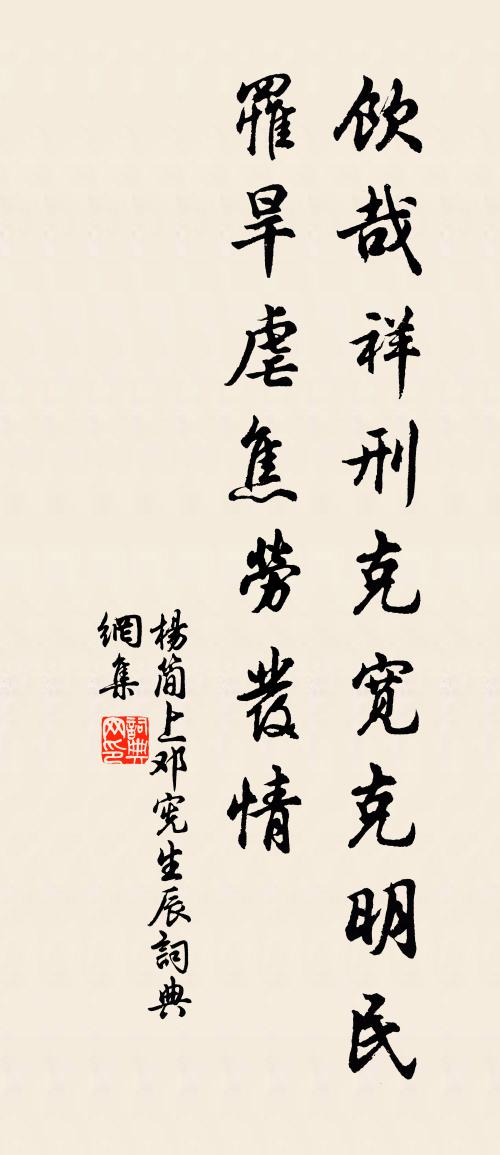 欽哉祥刑克寬克明民
罹旱虐焦勞發情
楊简上邓宪生辰詞典
網集
詞典
网印